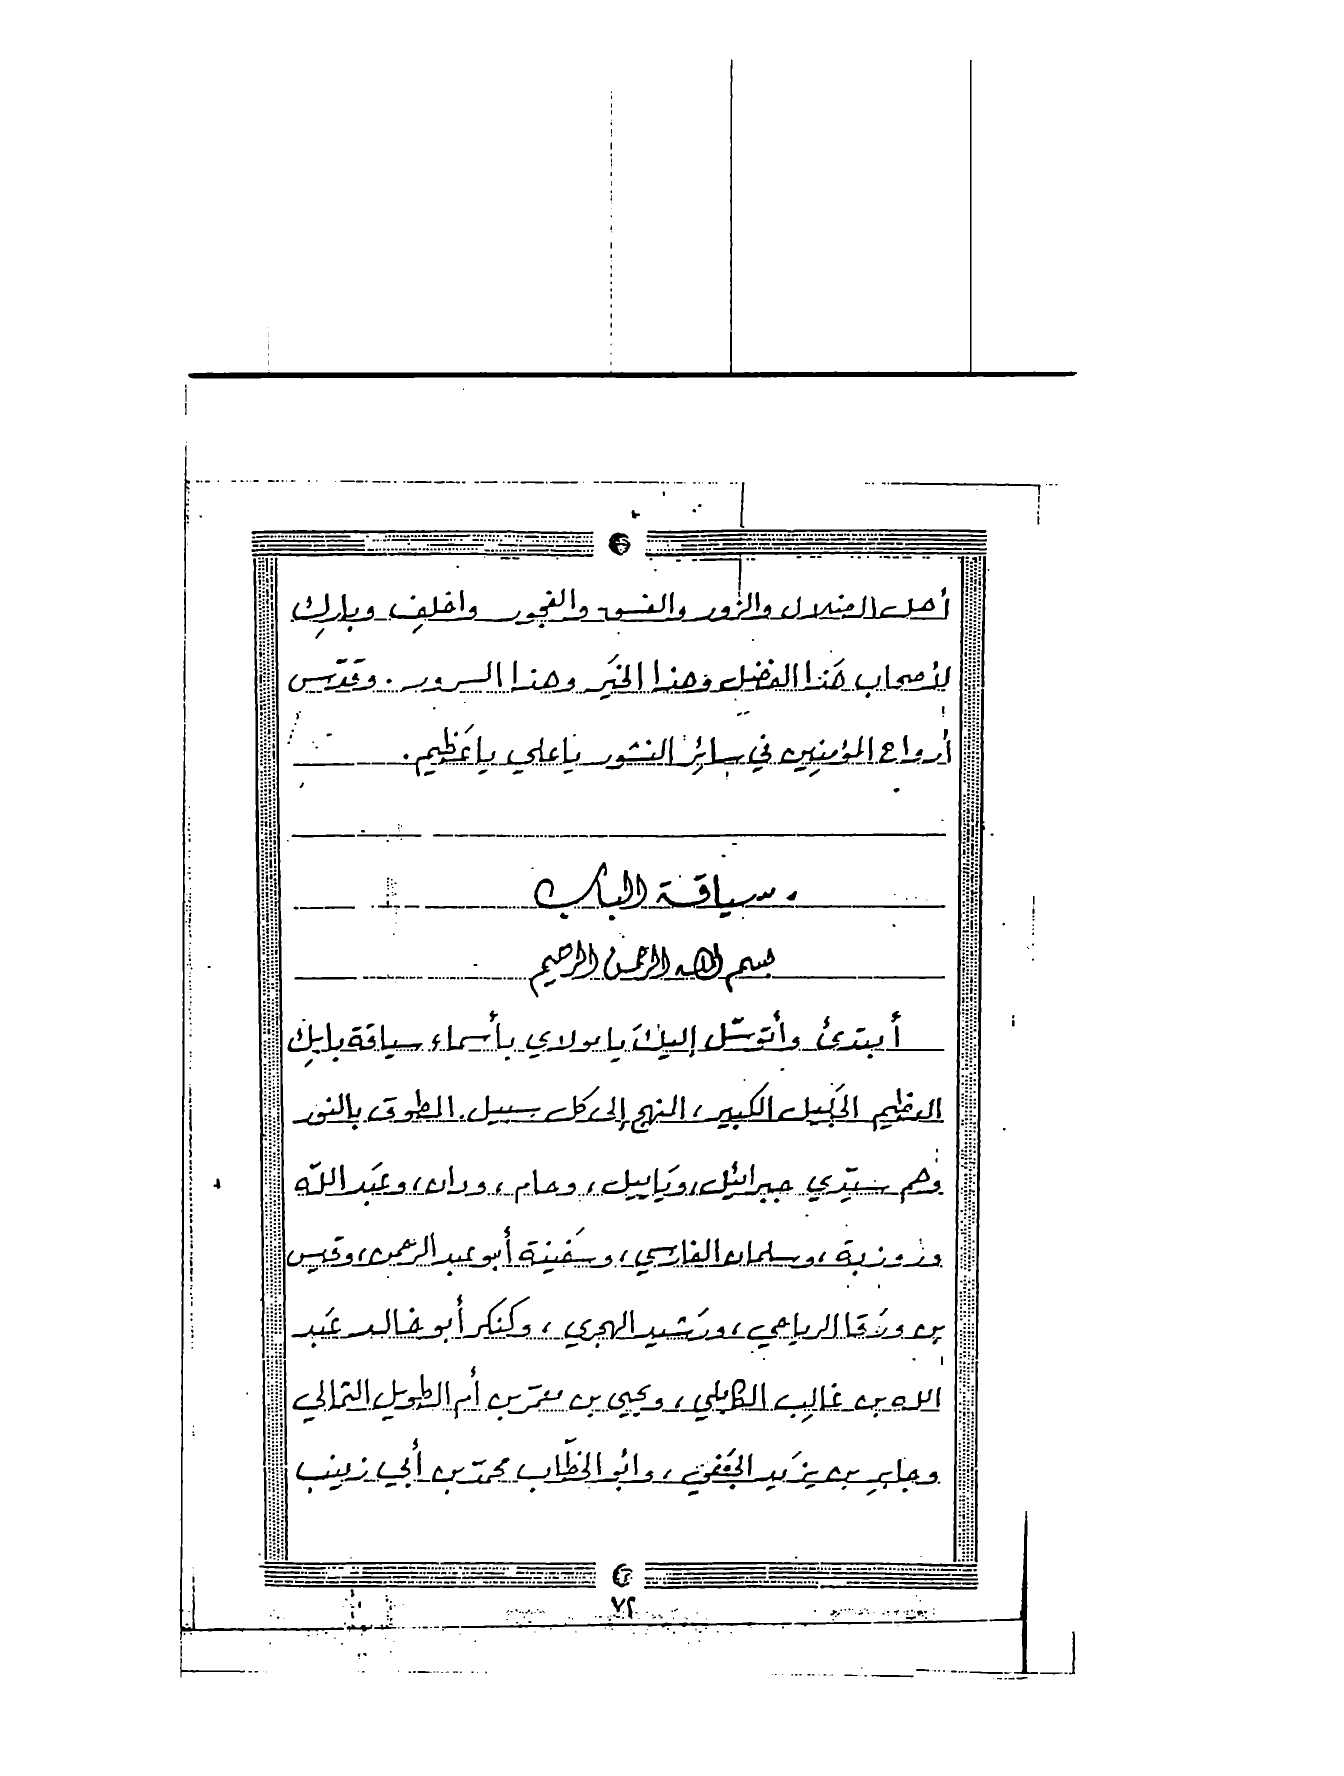 أهل الضلال والزور والفسق والفجور واخلف وبارك
لأصحاب هَذا الفضل وهذا الخَير وهذا السرور. وقَدّس
أرواح المؤمنِين في سائِر النشور ياعلي ياعَظِيم.
سياقة الباب
بسم الله الرحمن الرحيم
أبتدئ وأتوسّل إليكَ يامولاي بأسماء سياقة بابك
العظيم الجَليل الكبير، النهج إلى كل سبيل. المطوق بالنور
وهم سيّدي جبرائيل، ويَاييل، وحام، ودان، وعَبد اللّه
وروزبة، وسلمان الفارسي، وسَفينة أبو عبد الرحمن، وقيس
بن ورَقا الرياحي، ورَشيد الهجري، وكنَكر أبو خالد عَبد
الله بن غالِب الكابلي، ويحيى بن معمّر بن أم الطويل الثمالي
وجابِر بن يزَيد الجَعفي، وابُو الخطّاب محمدّ بن أبي زينب
٧٢